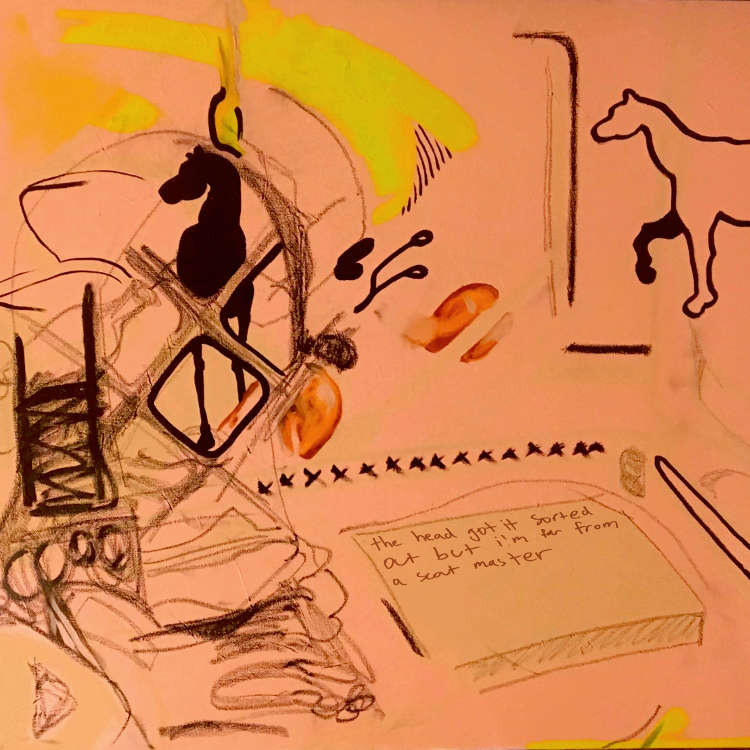 the head got it sorted
out but i'm far from
a scout master